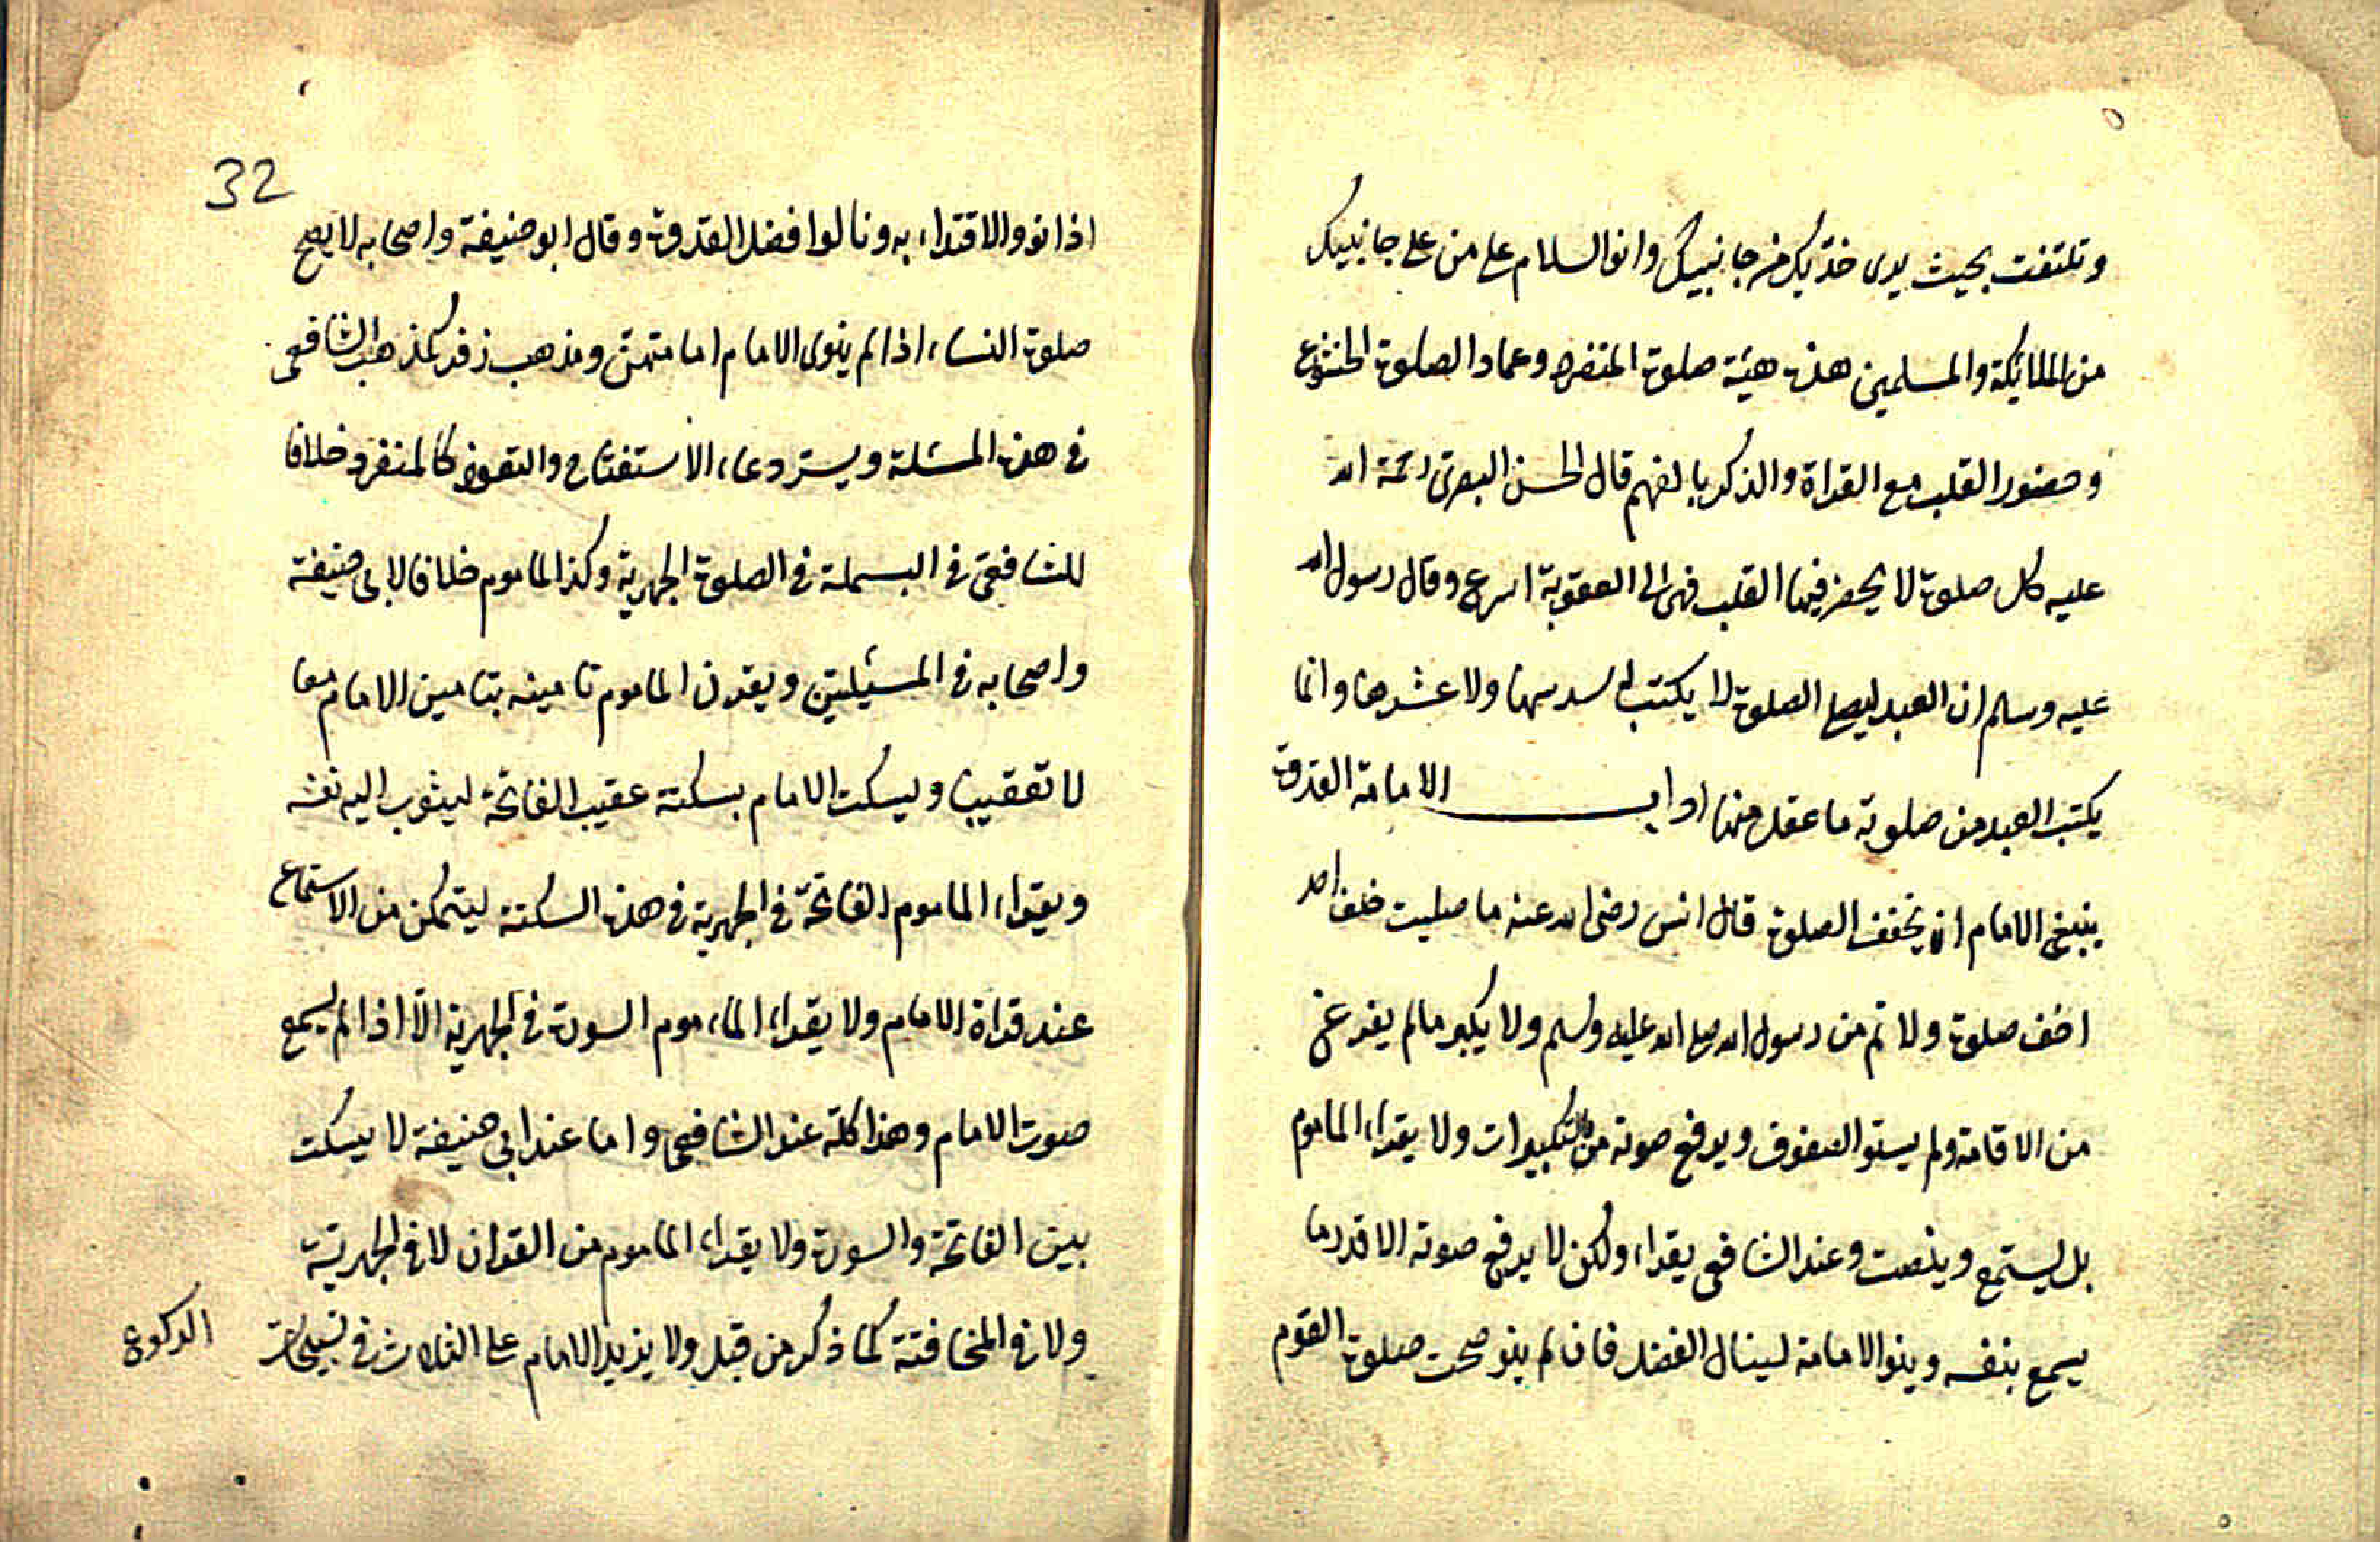 وتلتفت بحيث يرى خدّيك من جانبيك وانو السلام على من على جانبيك
من الملائكة والمسلمين هذه هيئة صلوة المنفرد وعماد الصلوة الخشوع
وحضور القلب مع القراة والذكر بالفهم قال الحسن البصرى رحمة الله
عليه كل صلوة لا يحضر فيها القلب فهى الى العقوبة اسرع وقال رسول الله
عليه وسلم ان العبد ليصلى الصلوة لا يكتب له سدسها ولا عشرها وانما
يكتب العبد من صلوته ما عقل منها اداب الامامة القدوة
ينبغى الامام ان يخفف الصلوة قال انس رضى الله عنه ما صليت خلف احد
اخف صلوة ولا تم من رسول الله صلى الله عليه وسلم ولا يكبر مالم يفرغ
من الاقامة ولم يستو الصفوف ويرفع صوته من التكبيرات ولا يقراء الماموم
بل يستمع وينصت وعند الشافعى يقراء ولكن لا يرفع صوته الا قدر ما
يسمع بنفسه وينو الامامة لينال الفضل فان لم ينو صحت صلوة القوم
32
اذا نووا الاقتداء به ونالوا فضل القدوة وقال ابو حنيفة واصحابه لا يصح
صلوة النساء اذا لم ينوى الامام امامتهنّ ومذهب زفر كمذهب الشافعى
فى هذه المسئلة ويسر دعاء الاستفتاح والتعوذ كالمنفرد خلافا
للشافعىّ فى البسملة فى الصلوة الجهرية وكذا الماموم خلافا لابى حنيفة
واصحابه فى المسئيلتين ويقرن الماموم تامينه بتامين الامام معا
لا تعقيبا ويسكت الامام بسكتة عقيب الفاتحة ليثوب اليه نفسه
ويقراء الماموم الفاتحة فى الجهرية فى هذه السكتة ليتمكن من الاستماع
عند قراة الامام ولا يقراء الماءموم السورة فى الجهرية الّا اذا لم يسمع
صوت الامام وهذا كلّه عند الشافعى واما عند ابى حنيفة لا يسكت
بين الفاتحة والسورة ولا يقراء الماموم من القران لا فى الجهريّة
ولا فى المخافتة كما ذكر من قبل ولا يزيد الامام على الثلاث فى تسبيحات
الركوع